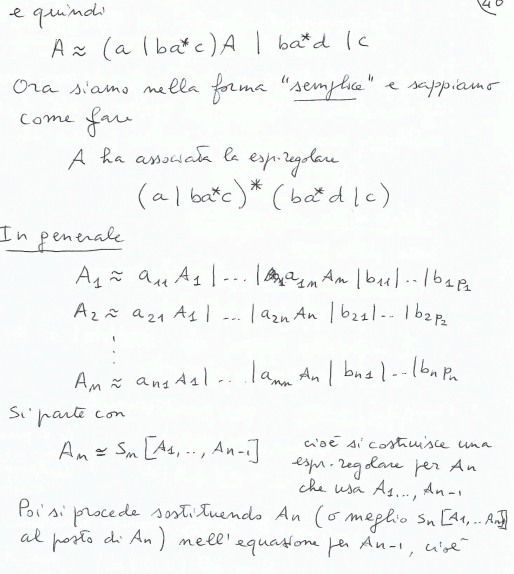 40
e quindi
A ≈ (a | ba*c)A | ba*d | c
Ora siamo nella forma "semplice" e sappiamo
come fare
A ha associata la esp. regolare
(a | ba*c)* (ba*d | c)
In generale
A1 ≈ a11 A1 | ... | a1n An | b11 | .. | b1p1
A2 ≈ a21 A1 | ... | a2n An | b21 | .. | b2p2
⋮
An ≈ an1 A1 | ... | ann An | bn1 | .. | bnpn
Si parte con
An ≃ Sn [A1, .., An-1] cioè si costruisce una
espr. regolare per An
che usa A1..., An-1
Poi si procede sostituendo An (o meglio Sn [A1, .. An-1]
al posto di An) nell'equazione per An-1, cioè